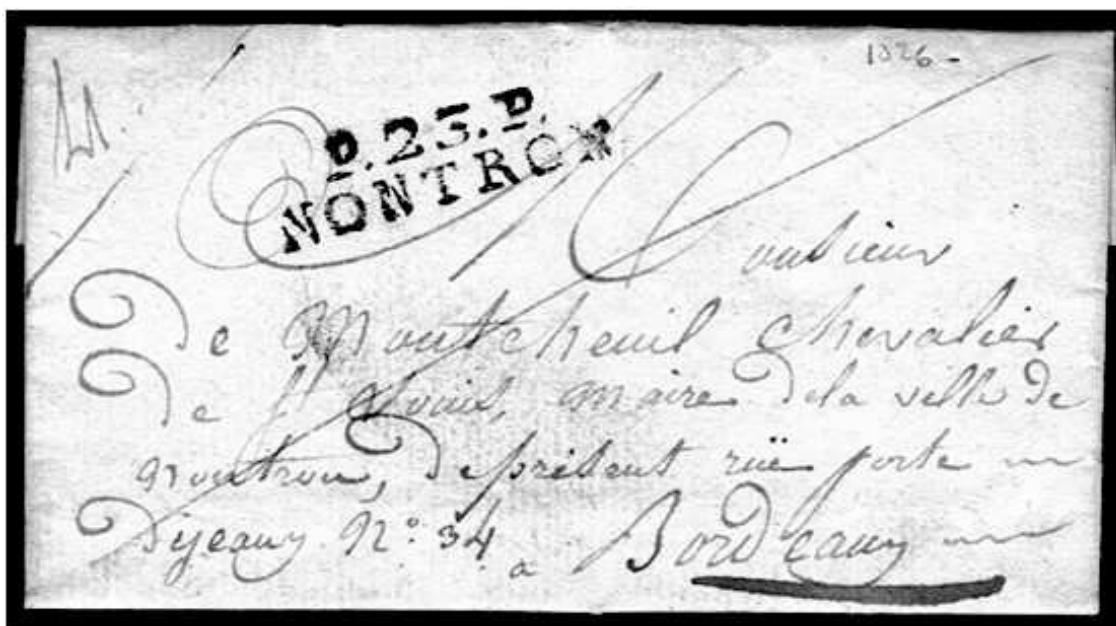 1826 -
P.23.P.
NONTRON
Monsieur
De Montcheuil Chevalier
De St Louis, maire dela ville de
nontron, de présent rüe porte
Dijeaux N.° 34 a Bordeaux